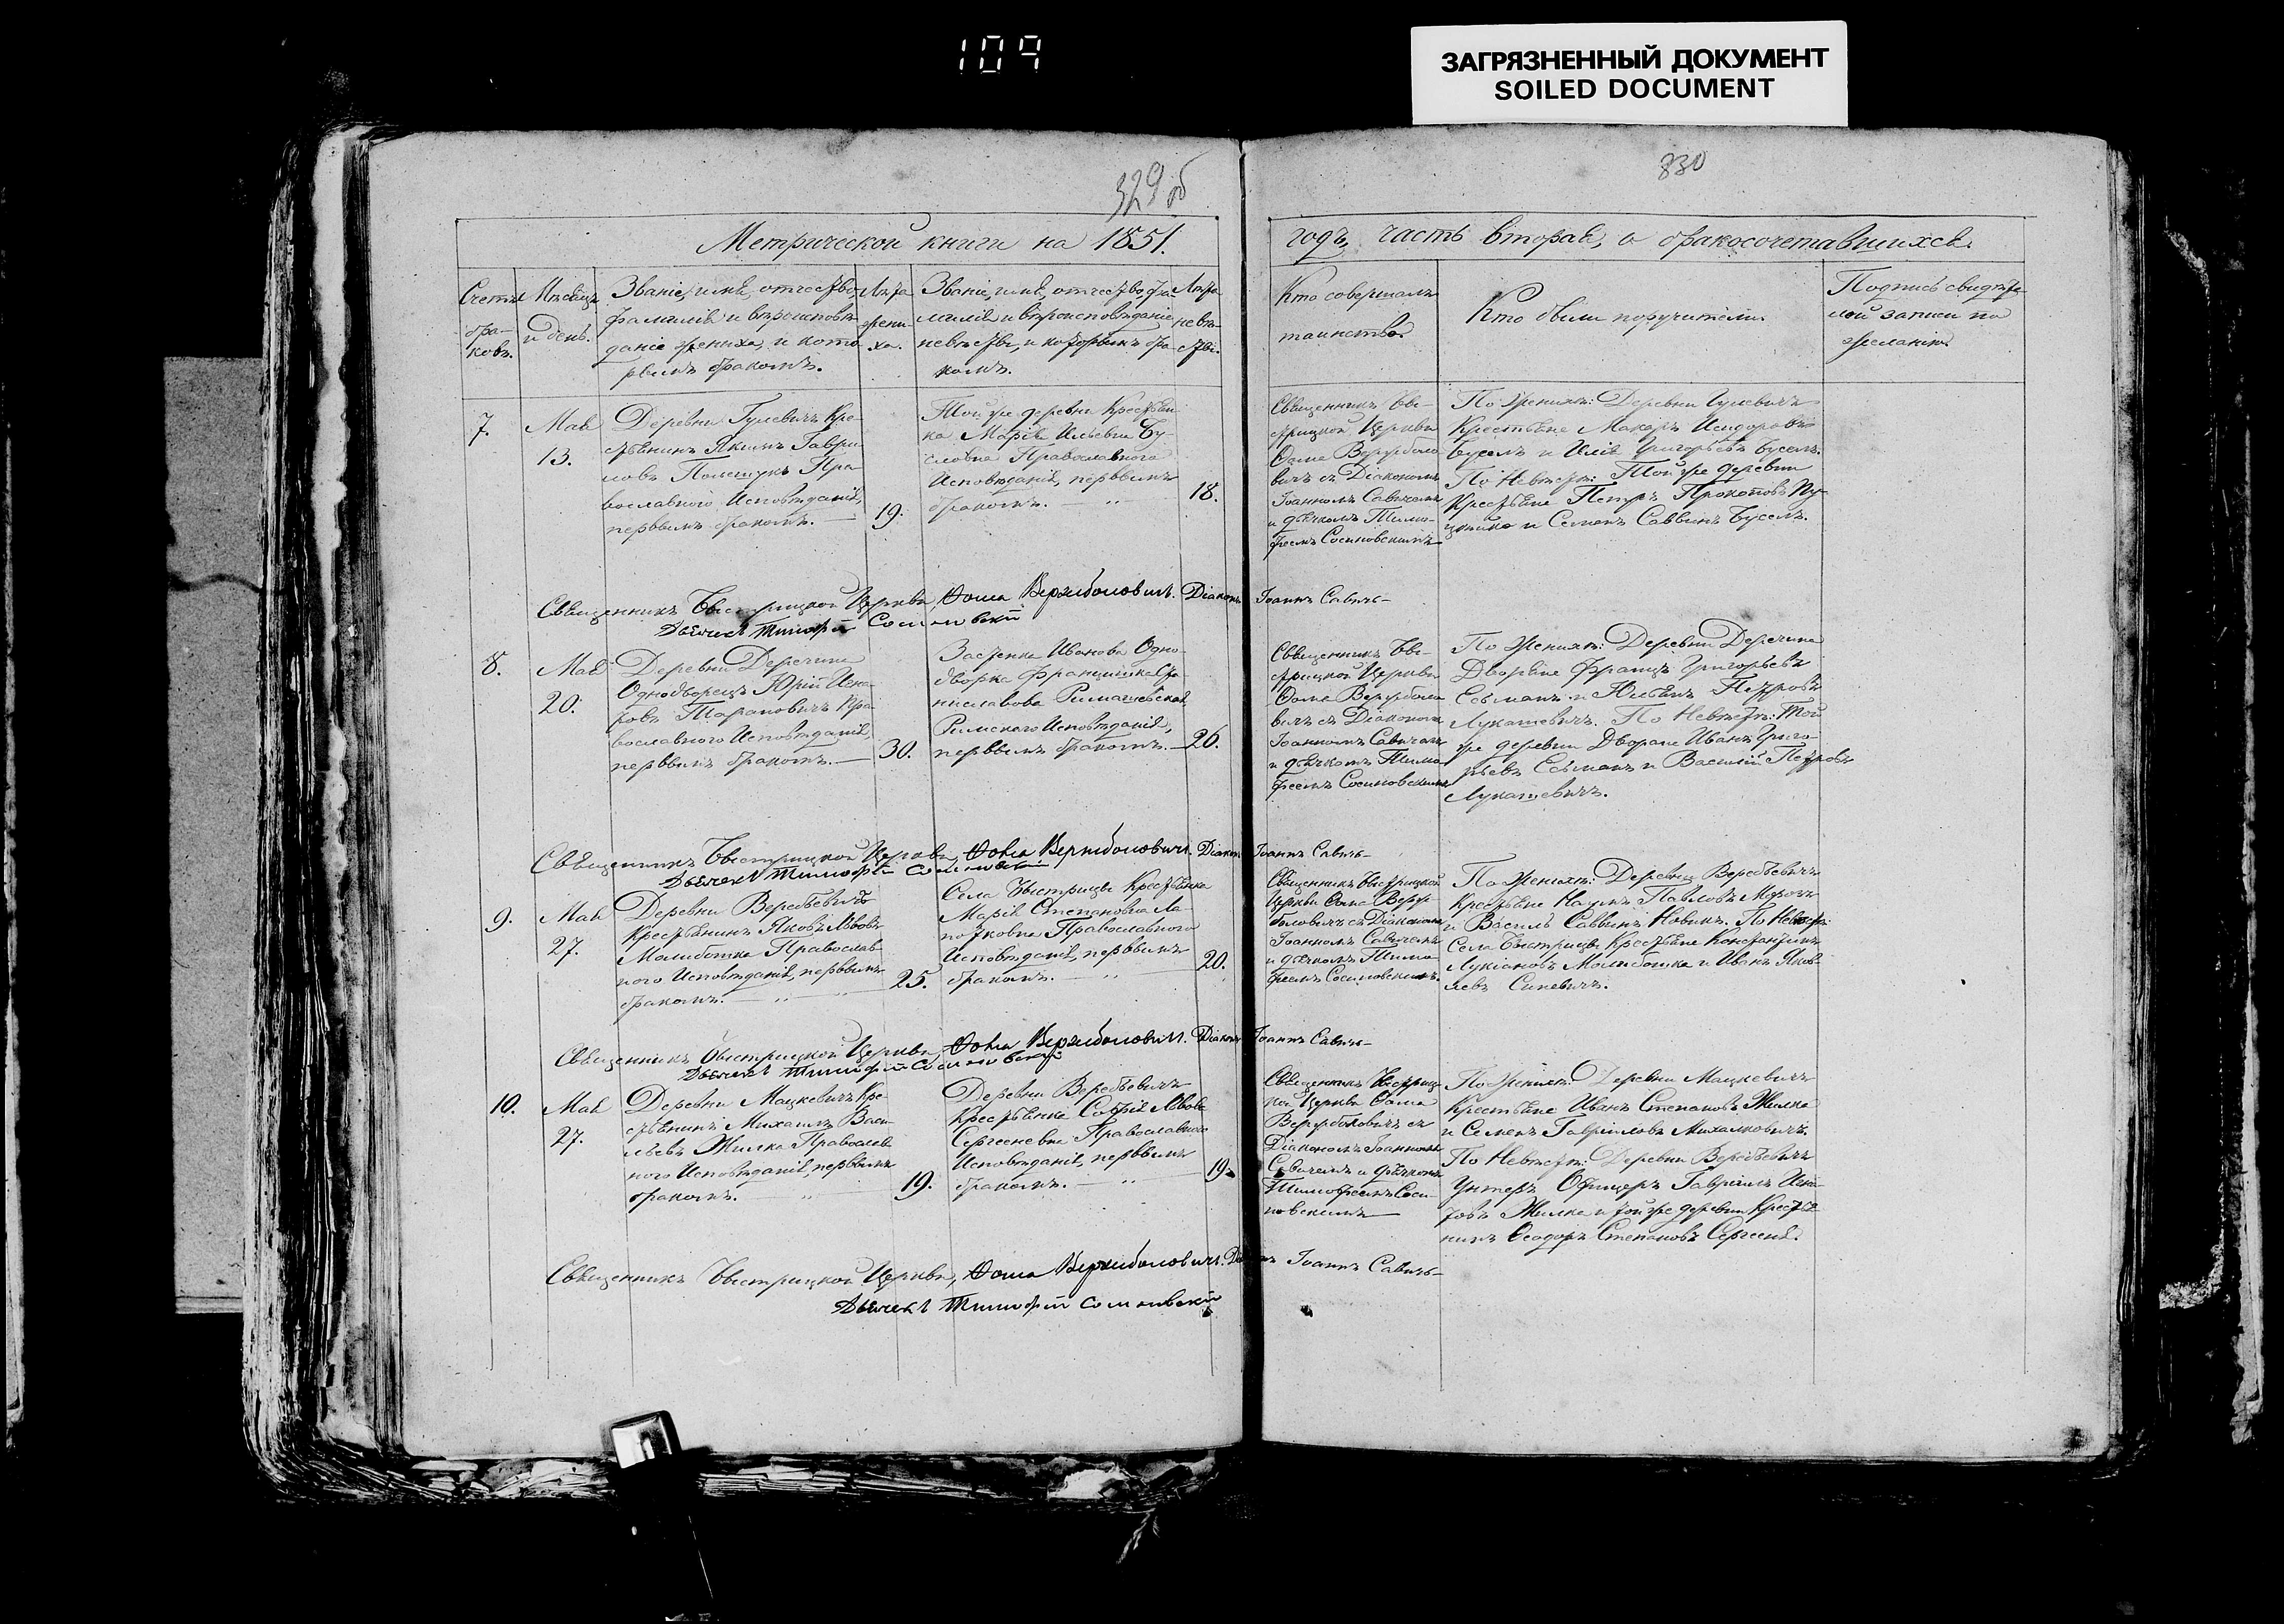 109
ЗАГРЯЗНЕННЫЙ ДОКУМЕНТ
SOILED DOCUMENT
329 об
830
Метрической книги на 1851.
годъ, часть вторая, о бракосочетавшихся.
Счетъ
бра-
ковъ.
Мѣсяцъ
и день.
Званіе, имя, отчество,
фамилія и вѣроисповѣ-
даніе жениха, и кото-
рымъ бракомъ.
Лѣта
жени-
ха.
Званіе, имя, отчество, фа-
милія и вѣроисповѣданіе
невѣсты, и которымъ бра-
комъ.
Лѣта
невѣ-
сты.
Кто совершалъ
таинство.
Кто были поручители.
Подпись свидѣте-
лей записи по
желанію.
7.
Мая
13.
Деревни Гулевичъ Кре-
стьянинъ Якимъ Гаври-
ловъ Полещукъ Пра-
вославнаго Исповѣданія,
первымъ бракомъ.
19.
Той же деревни Крестьян-
ка Марія Ильевна Бу-
словна Православнаго
Исповѣданія, первымъ
бракомъ.
18.
Священникъ Бы-
стрицкой Церкви
Ѳома Вержболо-
вичъ съ Діакономъ
Іоанномъ Савичемъ
и дьячкомъ Тимо-
феемъ Сосиновскимъ
По Женихѣ: Деревни Гулевичъ
Крестьяне Макаръ Исидоровъ
Буселъ и Илія Григорьевъ Буселъ.
По Невѣстѣ: Той же деревни
Крестьяне Петръ Прокоповъ
и Семенъ Саввинъ Буселъ.
Священникъ Быстрицкой Церкви, Ѳома Вержболовичъ. Діаконъ Іоаннъ Савичь
Дьячекъ Тимофей Сосиновскій
8.
Мая
20.
Деревни Деречина
Однодворецъ Юрій Игна-
товъ Тарановичъ Пра-
вославнаго Исповѣданія
первымъ бракомъ.
30.
Застенка Иванова Одно-
дворка Францишка Ста-
ниславова Римашевская
Римскаго Исповѣданія,
первымъ бракомъ.
26.
Священникъ Бы-
стрицкой Церкви
Ѳома Вержболо-
вичъ съ Діакономъ
Іоанномъ Савичемъ
и дьячкомъ Тимо-
феемъ Сосиновскимъ
По Женихѣ: Деревни Деречина
Дворяне Францъ Григорьевъ
и Юліянъ Петровъ
Лукашевичъ. По Невѣстѣ: Той
же деревни Дворяне Иванъ Григо-
рьевъ и Василій Петровъ
Лукашевичъ.
Священникъ Быстрицкой Церкви, Ѳома Вержболовичъ. Діаконъ Іоаннъ Савичь
Дьячекъ Тимофей Сосиновскій
9.
Мая
27.
Деревни Веребьевичъ
Крестьянинъ Яковъ Львовъ
Малиботка Православ-
наго Исповѣданія, первымъ
бракомъ.
25.
Села Быстрицы Крестьянка
Марія Степановна Ла-
потковна Православнаго
Исповѣданія, первымъ
бракомъ.
20.
Священникъ Быстрицкой
Церкви Ѳома Верж-
боловичъ съ Діакономъ
Іоанномъ Савичемъ
и дьячкомъ Тимо-
феемъ Сосиновскимъ.
По Женихѣ: Деревни Веребьевичъ
Крестьяне Наумъ Павловъ Морозъ
и Василь Саввинъ Новикъ. По Невѣстѣ:
Села Быстрицы Крестьяне Константинъ
Лукіановъ Малиботка и Иванъ Яков-
левъ Синевичъ.
Священникъ Быстрицкой Церкви, Ѳома Вержболовичъ. Діаконъ Іоаннъ Савичь
Дьячекъ Тимофей Сосиновскій
10.
Мая
27.
Деревни Мацкевичъ Кре-
стьянинъ Михаилъ Васи-
льевъ Жилка Православ-
наго Исповѣданія, первымъ
бракомъ.
19.
Деревни Веребьевичъ
Крестьянка Софія Львова
Сергеевна Православнаго
Исповѣданія, первымъ
бракомъ.
19.
Священникъ Быстриц-
кой Церкви Ѳома
Вержболовичъ съ
Діакономъ Іоанномъ
Савичемъ и дьячкомъ
Тимофеемъ Соси-
новскимъ
По Женихѣ: Деревни Мацкевичъ
Крестьяне Иванъ Степановъ Жилка
и Семенъ Гавріиловъ Михалковичъ.
По Невѣстѣ: Деревни Веребьевичъ
Унтеръ Офицеръ Гавріилъ Игна-
товъ Жилка и той же деревни Крестья-
нинъ Ѳеодоръ Степановъ Сергеенъ.
Священникъ Быстрицкой Церкви, Ѳома Вержболовичъ. Діаконъ Іоаннъ Савичь
Дьячекъ Тимофей Сосиновскій